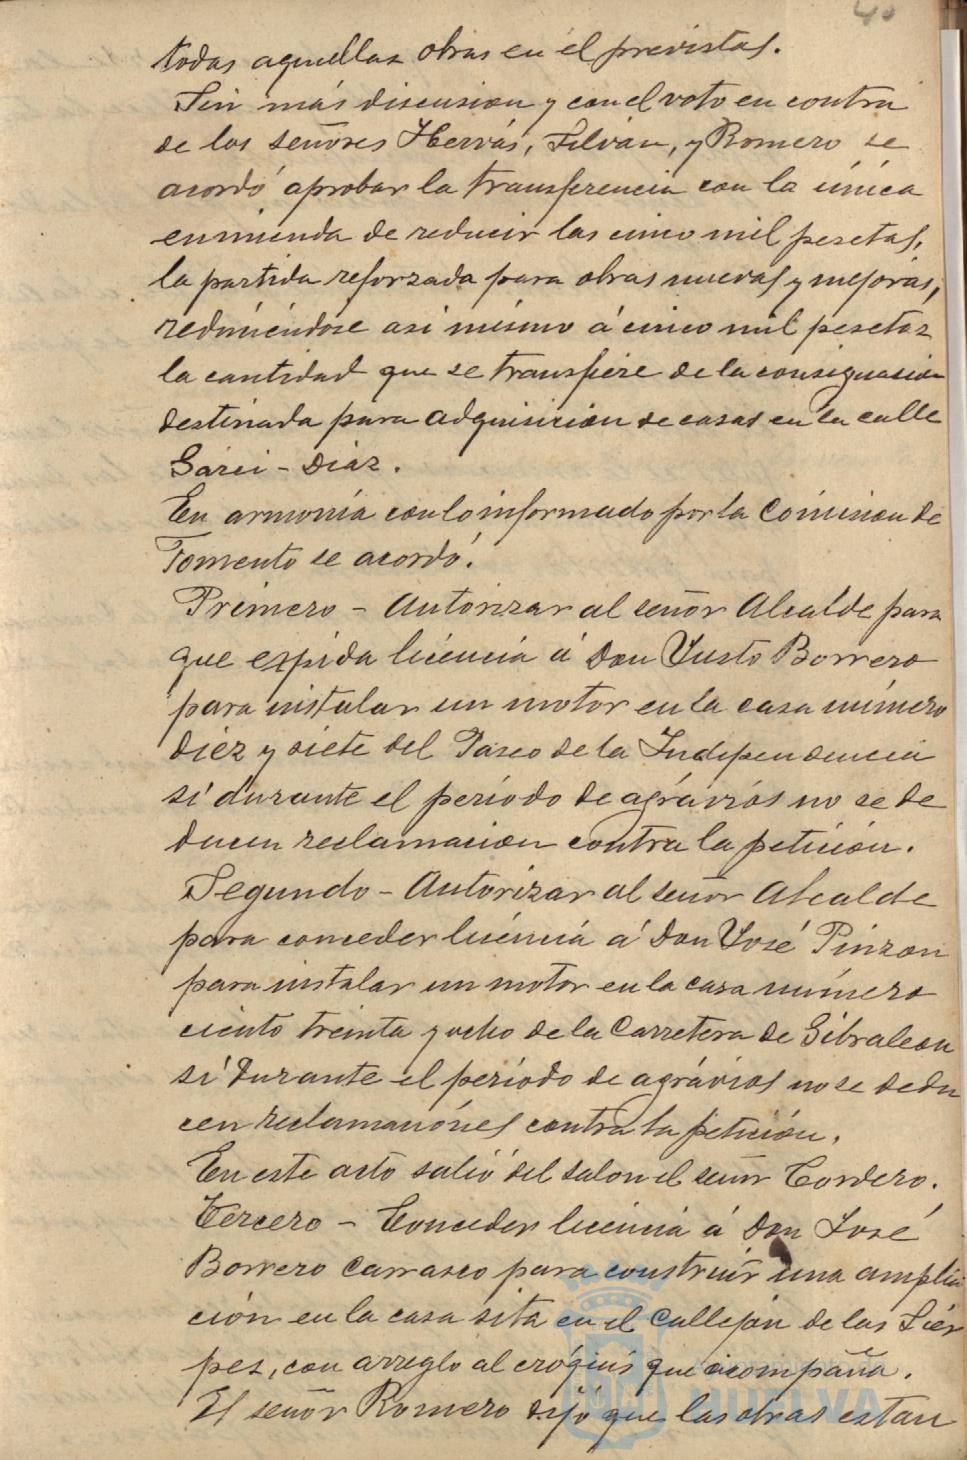 40
todas aquellas obras en él previstas.
Sin más discusion y con el voto en contra
de los señores Hervás, Silván, y Romero se
acordó aprobar la transferencia con la única
enmienda de reducir las cinco mil pesetas,
la partida reforzada para obras nuevas y mejoras,
reduciéndose asi mismo á cinco mil pesetas
la cantidad que se transfiere de la consignacion
destinada para adquisicion de casas en la calle
Garci-Diaz.
En armonía con lo informado por la Comision de
Fomento se acordó.
Primero - Autorizar al señor Alcalde para
que expida licencia á Don Justo Borrero
para instalar un motor en la casa número
diez y siete del Paseo de la Independencia
si durante el período de agrávios no se de
ducen reclamacion contra la petición.
Segundo - Autorizar al señor Alcalde
para conceder licencia á Don José Pinzon
para instalar un motor en la casa número
ciento treinta y ocho de la Carretera de Gibraleon
si durante el período de agrávios no se dedu
cen reclamaciónes contra la petición.
En este acto salió del salon el señor Cordero.
Tercero - Conceder licencia á Don José
Borrero Carrasco para construir una amplia
ción en la casa sita en el Callejón de las Sier
pes, con arreglo al cróquis que acompaña.
El señor Romero dijó que las obras estan
HUELVA